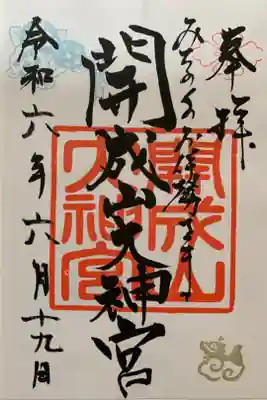 奉拝
みちのくのお伊勢さま
開成山大神宮
開成山大神宮
令和六年六月十九日